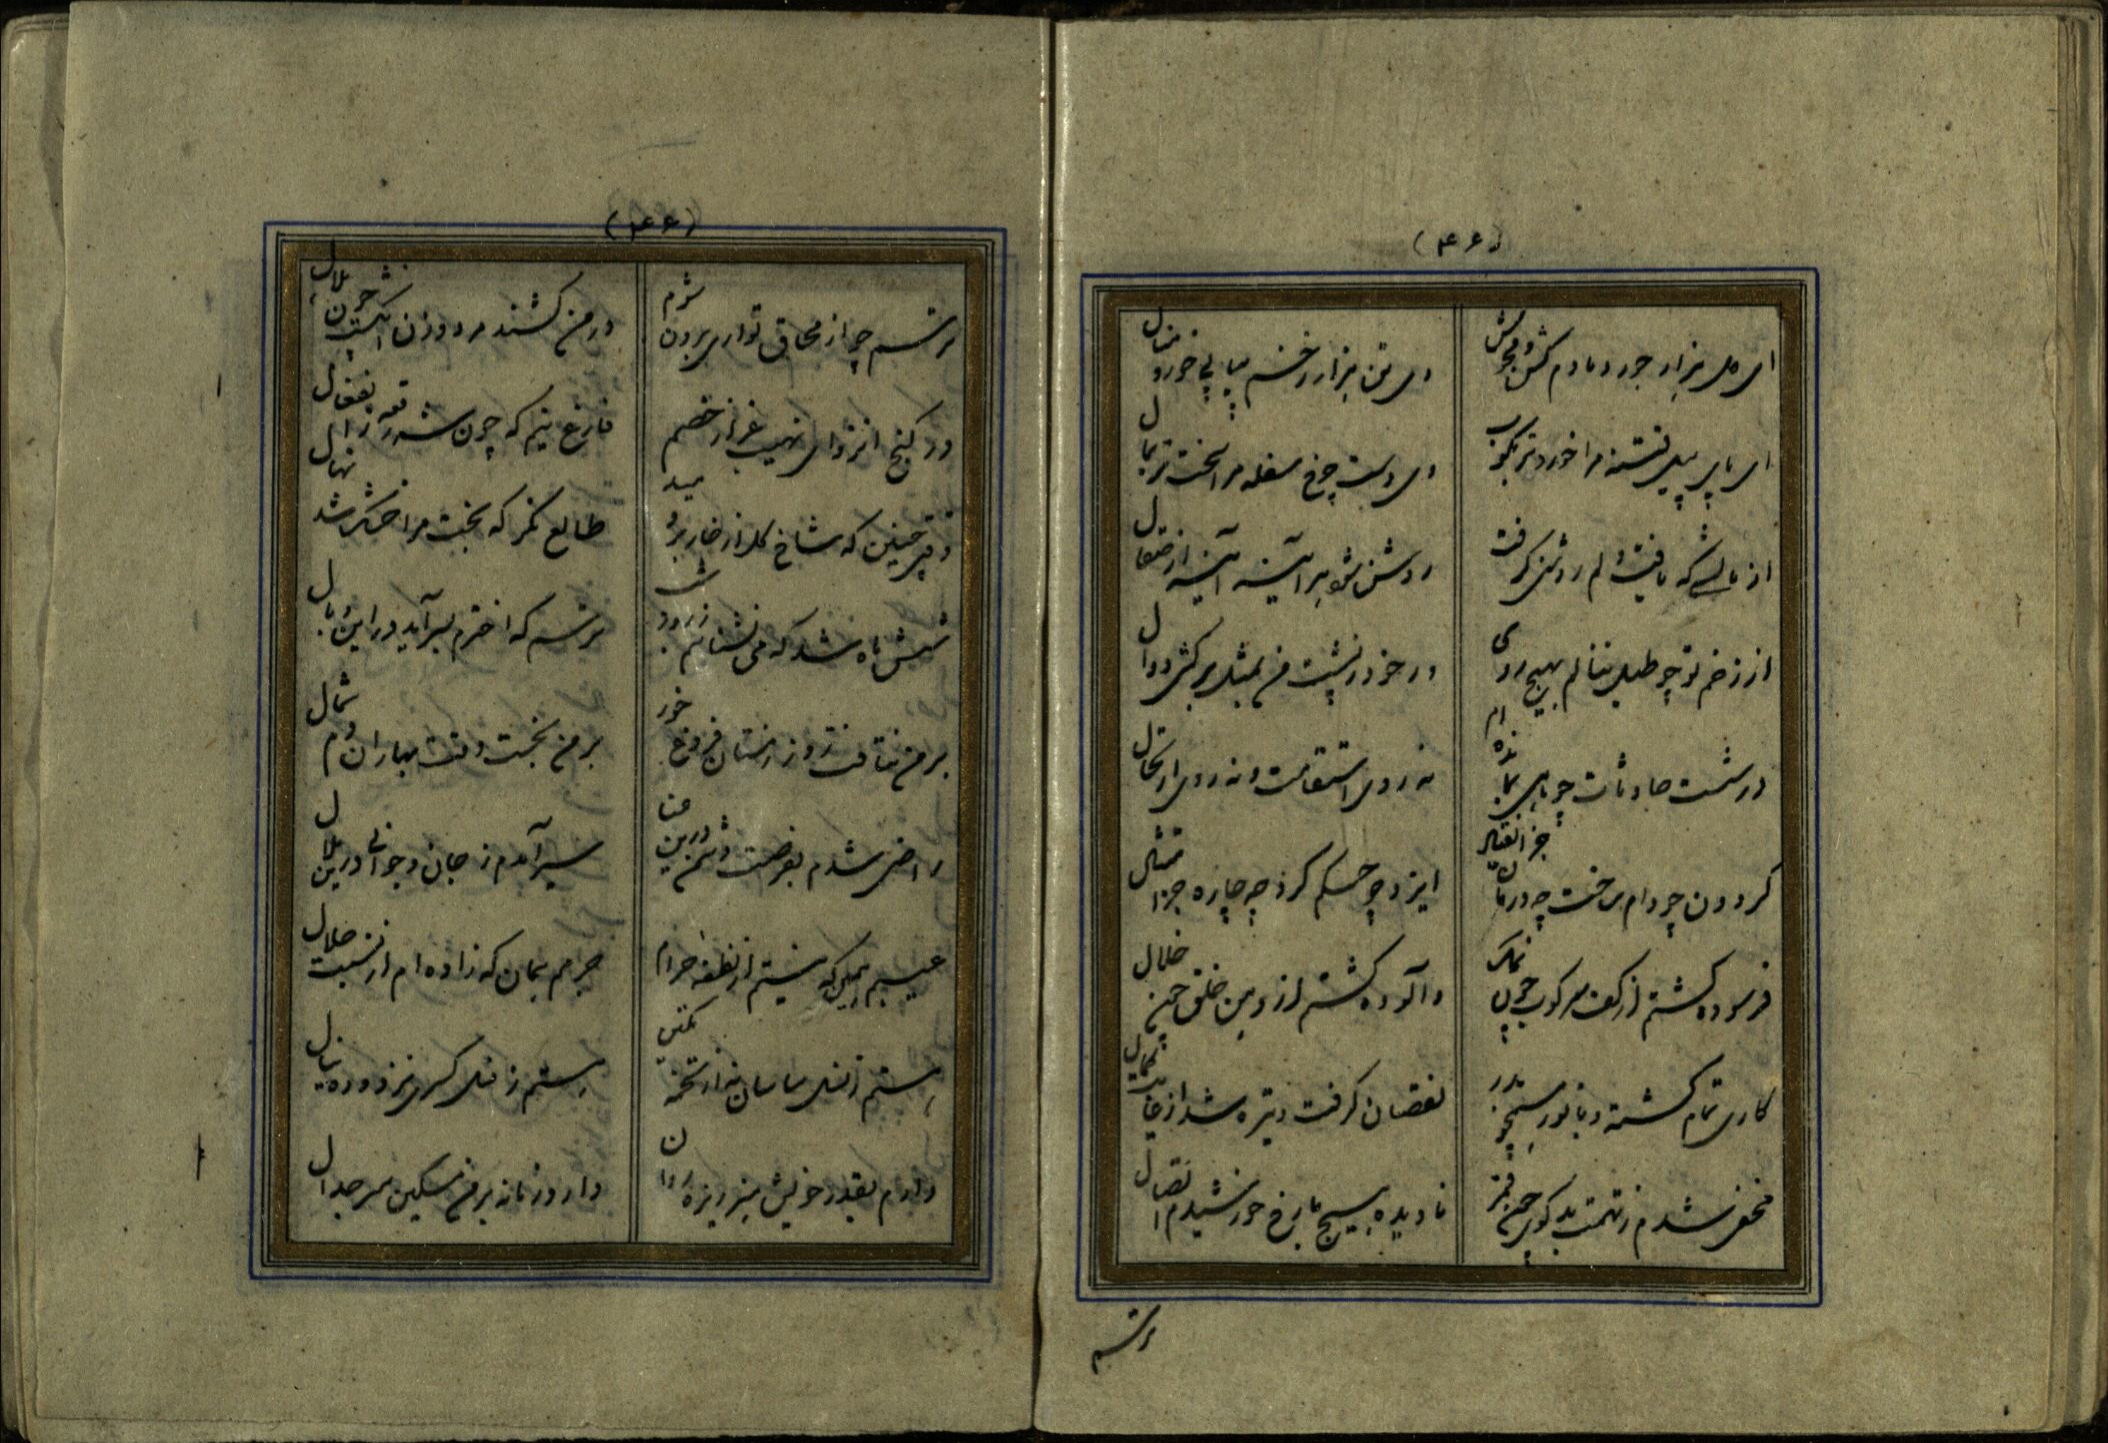 (۴۶)
ای دل هزار جور دمادم کش و مجوش
وی تن هزار زخم پیاپی خور و منال
ای پای پیل فتنه مرا خوردتر بکوب
وی دست چرخ سفله مرا سخت تر بمال
از نالشی که یافت دلم روشنی گرفت
روشن شود هر آینه آینه از صقال
از زخم تو چو طبل ننالم بهیچ روی
ور خود ز پشت من بمثل برکشی دوال
در شست حادثات چو ماهی بمانده ام
نه روی استقامت و نه روی ارتحال
گردون چو دام ساخت چه درمان جز انقیاد
ایزد چو حکم کرد چه چاره جز امتثال
فرسوده گشتم از کف سرکوب چون نمک
وآلوده گشتم از دهن خلق چون خلال
کاری تمام گشته و با نور همچو بدر
نقصان گرفت و تیره شد از غایت کمال
مخفی شدم ز تهمت بدگوی چون قمر
نادیده هیچ با رخ خورشیدم اتصال
ترسم
(۴۶)
ترسم چو از محاق تواری برون شوم
در من کشند مرد و زن انگشت چون هلال
در کنج انزوا نهیب غرار خصم
فارغ نیم که چون شود
وقتی چنین که شاخ گل از خار بر دمید
طالع نگر که بخت مرا خشک شد نهال
شش ماه شد که می نشناسم ز روز شب
ترسم که اخترم بسر آید در این وبال
بر من نتافت روز زمستان فروغ خور
بر من نجست وقت بهاران دم شمال
راضی شدم بفرصت دشمن درین عنا
سیر آمدم ز جان و جوانی درین ملال
عیبم همین که نیستم از نطفه حرام
جرمم همان که زاده ام از نسبت حلال
هستم ز نسل ساسان نه از تخمه تکین
هستم ز نسل کسری نز دوده ینال
دارم بقدر خویش هنر ریزه روان
دارد زمانه بر من مسکین سر جدال